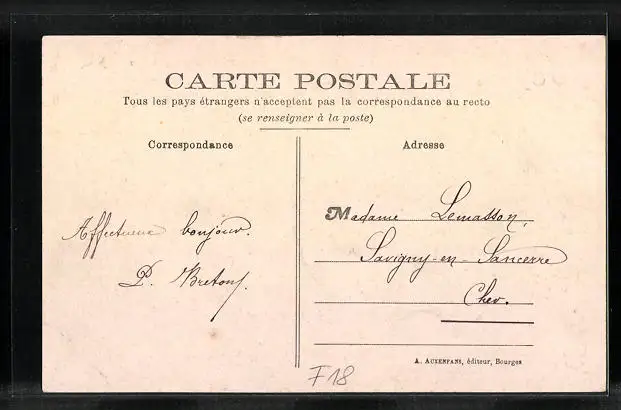 CARTE POSTALE
Tous les pays étrangers n'acceptent pas la correspondance au recto
(se renseigner à la poste)
Correspondance
Affectueux bonjour.
P. Breton
Adresse
Madame Lemasson,
Savigny-en-Sancerre
Cher.
A. AUXENFANS, éditeur, Bourges
F18